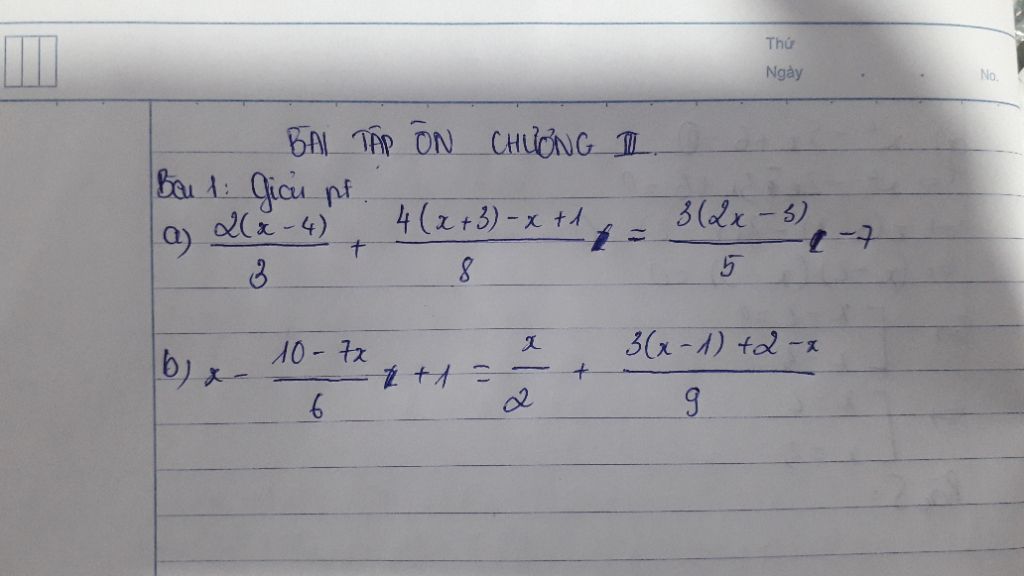 Thứ
Ngày . . No.
BÀI TẬP ÔN CHƯƠNG III.
Bài 1: Giải pt.
a) 2(x-4)/3 + 4(x+3)-x+1/8 = 3(2x-3)/5 -7
b) x - 10-7x/6 +1 = x/2 + 3(x-1)+2-x/9